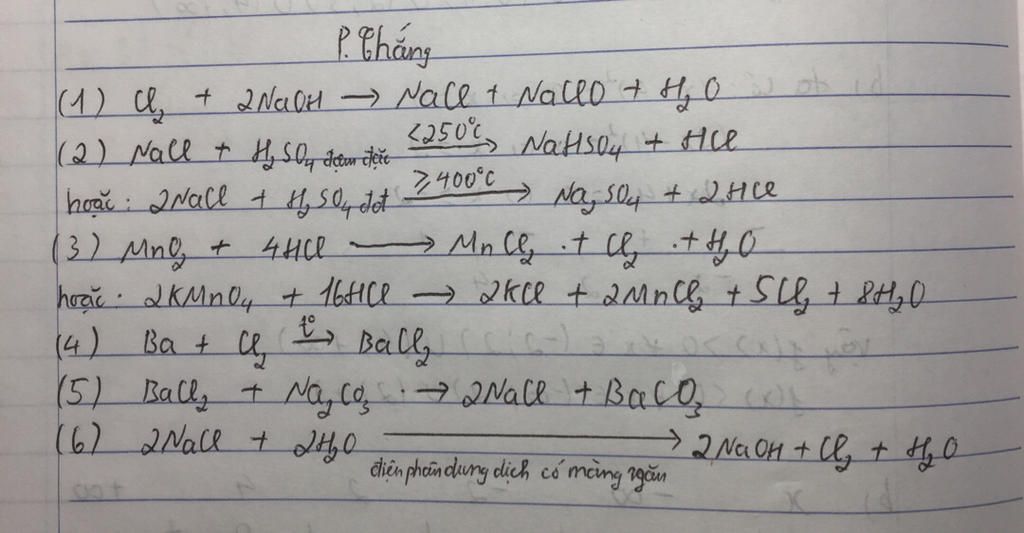 P. Thắng
(1) Cl₂ + 2NaOH → NaCl + NaClO + H₂O
(2) NaCl + H₂SO₄ đậm đặc <250°C → NaHSO₄ + HCl
hoặc: 2NaCl + H₂SO₄ đđ ≥400°C → Na₂SO₄ + 2HCl
(3) MnO₂ + 4HCl → MnCl₂ + Cl₂ + H₂O
hoặc: 2KMnO₄ + 16HCl → 2KCl + 2MnCl₂ + 5Cl₂ + 8H₂O
(4) Ba + Cl₂ t° → BaCl₂
(5) BaCl₂ + Na₂CO₃ → 2NaCl + BaCO₃
(6) 2NaCl + 2H₂O → 2NaOH + Cl₂ + H₂O
điện phân dung dịch có màng ngăn